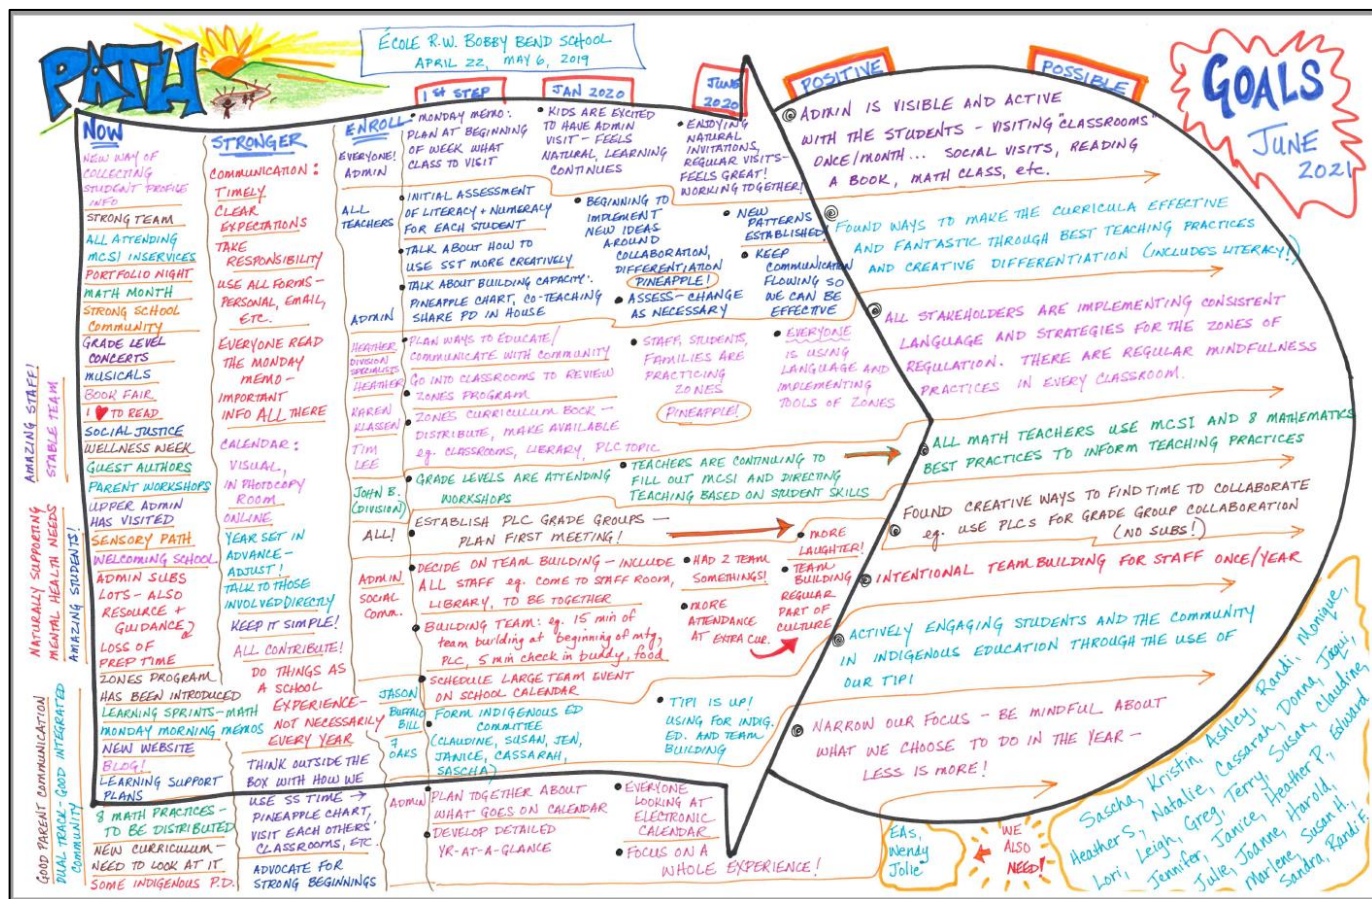 PATH
ÉCOLE R.W. BOBBY BEND SCHOOL
APRIL 22, MAY 6, 2019
NOW
NEW WAY OF
COLLECTING
STUDENT PROFILE
INFO
STRONG TEAM
ALL ATTENDING
MCSI INSERVICES
PORTFOLIO NIGHT
MATH MONTH
STRONG SCHOOL
COMMUNITY
GRADE LEVEL
CONCERTS
MUSICALS
BOOK FAIR
I ♥ TO READ
SOCIAL JUSTICE
WELLNESS WEEK
GUEST AUTHORS
PARENT WORKSHOPS
UPPER ADMIN
HAS VISITED
SENSORY PATH
WELCOMING SCHOOL
ADMIN SUBS
LOTS - ALSO
RESOURCE +
GUIDANCE
LOSS OF
PREP TIME
ZONES PROGRAM
HAS BEEN INTRODUCED
LEARNING SPRINTS - MATH
MONDAY MORNING MEMOS
NEW WEBSITE
BLOG!
LEARNING SUPPORT
PLANS
8 MATH PRACTICES -
TO BE DISTRIBUTED
NEW CURRICULUM -
NEED TO LOOK AT IT
SOME INDIGENOUS P.D.
AMAZING STAFF!
STABLE TEAM
NATURALLY SUPPORTING
MENTAL HEALTH NEEDS
AMAZING STUDENTS!
GOOD PARENT COMMUNICATION
DUAL TRACK - GOOD INTEGRATED
COMMUNITY
STRONGER
COMMUNICATION:
TIMELY
CLEAR
EXPECTATIONS
TAKE
RESPONSIBILITY
USE ALL FORMS -
PERSONAL, EMAIL,
ETC.
EVERYONE READ
THE MONDAY
MEMO -
IMPORTANT
INFO ALL THERE
CALENDAR:
VISUAL,
IN PHOTOCOPY
ROOM
ONLINE
YEAR SET IN
ADVANCE -
ADJUST!
TALK TO THOSE
INVOLVED DIRECTLY
KEEP IT SIMPLE!
ALL CONTRIBUTE!
DO THINGS AS
A SCHOOL
EXPERIENCE -
NOT NECESSARILY
EVERY YEAR
THINK OUTSIDE THE
BOX WITH HOW WE
USE SS TIME →
PINEAPPLE CHART,
VISIT EACH OTHERS'
CLASSROOMS, ETC.
ADVOCATE FOR
STRONG BEGINNINGS
ENROLL
EVERYONE!
ADMIN
ALL
TEACHERS
ADMIN
HEATHER
DIVISION
SPECIALISTS
HEATHER
KAREN
KLASSEN
TIM
LEE
JOHN B.
(DIVISION)
ALL!
ADMIN
SOCIAL
COMM.
JASON
BUFFALO
BILL
7
OAKS
ADMIN
1ST STEP
• MONDAY MEMO:
PLAN AT BEGINNING
OF WEEK WHAT
CLASS TO VISIT
• INITIAL ASSESSMENT
OF LITERACY + NUMERACY
FOR EACH STUDENT
• TALK ABOUT HOW TO
USE SST MORE CREATIVELY
• TALK ABOUT BUILDING CAPACITY:
PINEAPPLE CHART, CO-TEACHING
SHARE PD IN HOUSE
• PLAN WAYS TO EDUCATE/
COMMUNICATE WITH COMMUNITY
GO INTO CLASSROOMS TO REVIEW
• ZONES PROGRAM
• ZONES CURRICULUM BOOK -
DISTRIBUTE, MAKE AVAILABLE
eg. CLASSROOMS, LIBRARY, PLC TOPIC
• GRADE LEVELS ARE ATTENDING
WORKSHOPS
• ESTABLISH PLC GRADE GROUPS -
PLAN FIRST MEETING!
• DECIDE ON TEAM BUILDING - INCLUDE
ALL STAFF eg. COME TO STAFF ROOM,
LIBRARY, TO BE TOGETHER
• BUILDING TEAM: eg. 15 min of
team building at beginning of mtg,
PLC, 5 min check in buddy, food
• SCHEDULE LARGE TEAM EVENT
ON SCHOOL CALENDAR
• FORM INDIGENOUS ED
COMMITTEE
(CLAUDINE, SUSAN, JEN,
JANICE, CASSARAH,
SASCHA)
• PLAN TOGETHER ABOUT
WHAT GOES ON CALENDAR
• DEVELOP DETAILED
YR-AT-A-GLANCE
JAN 2020
• KIDS ARE EXCITED
TO HAVE ADMIN
VISIT - FEELS
NATURAL, LEARNING
CONTINUES
• BEGINNING TO
IMPLEMENT
NEW IDEAS
AROUND
COLLABORATION,
DIFFERENTIATION
PINEAPPLE!
• ASSESS - CHANGE
AS NECESSARY
• STAFF, STUDENTS,
FAMILIES ARE
PRACTICING
ZONES
PINEAPPLE!
• TEACHERS ARE CONTINUING TO
FILL OUT MCSI AND DIRECTING
TEACHING BASED ON STUDENT SKILLS
• HAD 2 TEAM
SOMETHINGS!
• MORE
ATTENDANCE
AT EXTRA CUR.
• TIPI IS UP!
USING FOR INDIG.
ED. AND TEAM
BUILDING
• EVERYONE
LOOKING AT
ELECTRONIC
CALENDAR
• FOCUS ON A
WHOLE EXPERIENCE!
JUNE
2020
• ENJOYING
NATURAL
INVITATIONS,
REGULAR VISITS -
FEELS GREAT!
WORKING TOGETHER!
• NEW
PATTERNS
ESTABLISHED!
• KEEP
COMMUNICATION
FLOWING SO
WE CAN BE
EFFECTIVE
• EVERYONE
IS USING
LANGUAGE AND
IMPLEMENTING
TOOLS OF ZONES
• MORE
LAUGHTER!
• TEAM
BUILDING
REGULAR
PART OF
CULTURE
POSITIVE
POSSIBLE
GOALS
JUNE
2021
ADMIN IS VISIBLE AND ACTIVE
WITH THE STUDENTS - VISITING "CLASSROOMS"
ONCE/MONTH... SOCIAL VISITS, READING
A BOOK, MATH CLASS, etc.
FOUND WAYS TO MAKE THE CURRICULA EFFECTIVE
AND FANTASTIC THROUGH BEST TEACHING PRACTICES
AND CREATIVE DIFFERENTIATION (INCLUDES LITERACY!)
ALL STAKEHOLDERS ARE IMPLEMENTING CONSISTENT
LANGUAGE AND STRATEGIES FOR THE ZONES OF
REGULATION. THERE ARE REGULAR MINDFULNESS
PRACTICES IN EVERY CLASSROOM.
ALL MATH TEACHERS USE MCSI AND 8 MATHEMATICS
BEST PRACTICES TO INFORM TEACHING PRACTICES
FOUND CREATIVE WAYS TO FIND TIME TO COLLABORATE
eg. USE PLCs FOR GRADE GROUP COLLABORATION
(NO SUBS!)
INTENTIONAL TEAM BUILDING FOR STAFF ONCE/YEAR
ACTIVELY ENGAGING STUDENTS AND THE COMMUNITY
IN INDIGENOUS EDUCATION THROUGH THE USE OF
OUR TIPI
NARROW OUR FOCUS - BE MINDFUL ABOUT
WHAT WE CHOOSE TO DO IN THE YEAR -
LESS IS MORE!
EAs,
Wendy
Jolie
WE
ALSO
NEED!
Sascha, Kristin, Ashley, Randi, Monique,
Heather S, Natalie, Cassarah, Donna, Jacqui,
Lori, Leigh, Greg, Terry, Susan, Claudine,
Jennifer, Janice, Heather P., Edward
Julie, Joanne, Harold,
Marlene, Susan H.,
Sandra, Randi